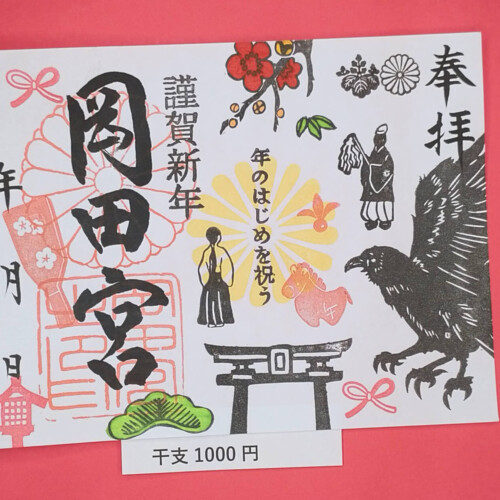 奉拝
年のはじめを祝う
謹賀新年
岡田宮
年
月
日
干支1000円